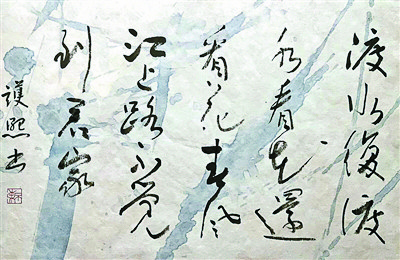 渡水復渡
水看花還
看花春風
江上路不覺
到君家
護熙书